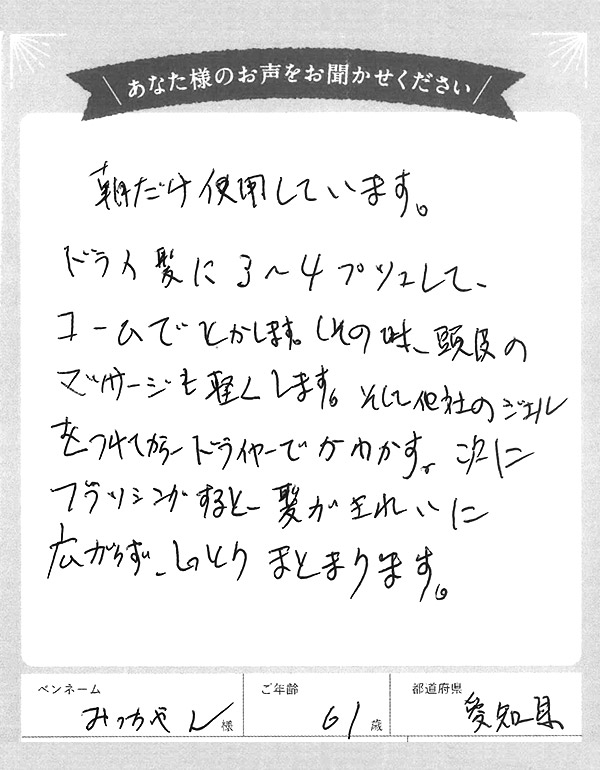 あなた様のお声をお聞かせください
朝だけ使用しています。
ドライ髪に3〜4プッシュして、
コームでとかします。(その時、頭皮の
マッサージも軽くします。そして他社のジェル
をつけてからドライヤーでかわかす。次に
ブラッシングすると、髪がきれいに
広がらず、しっとりまとまります。
ペンネーム ご年齢 都道府県
みっちゃん様 61歳 愛知県